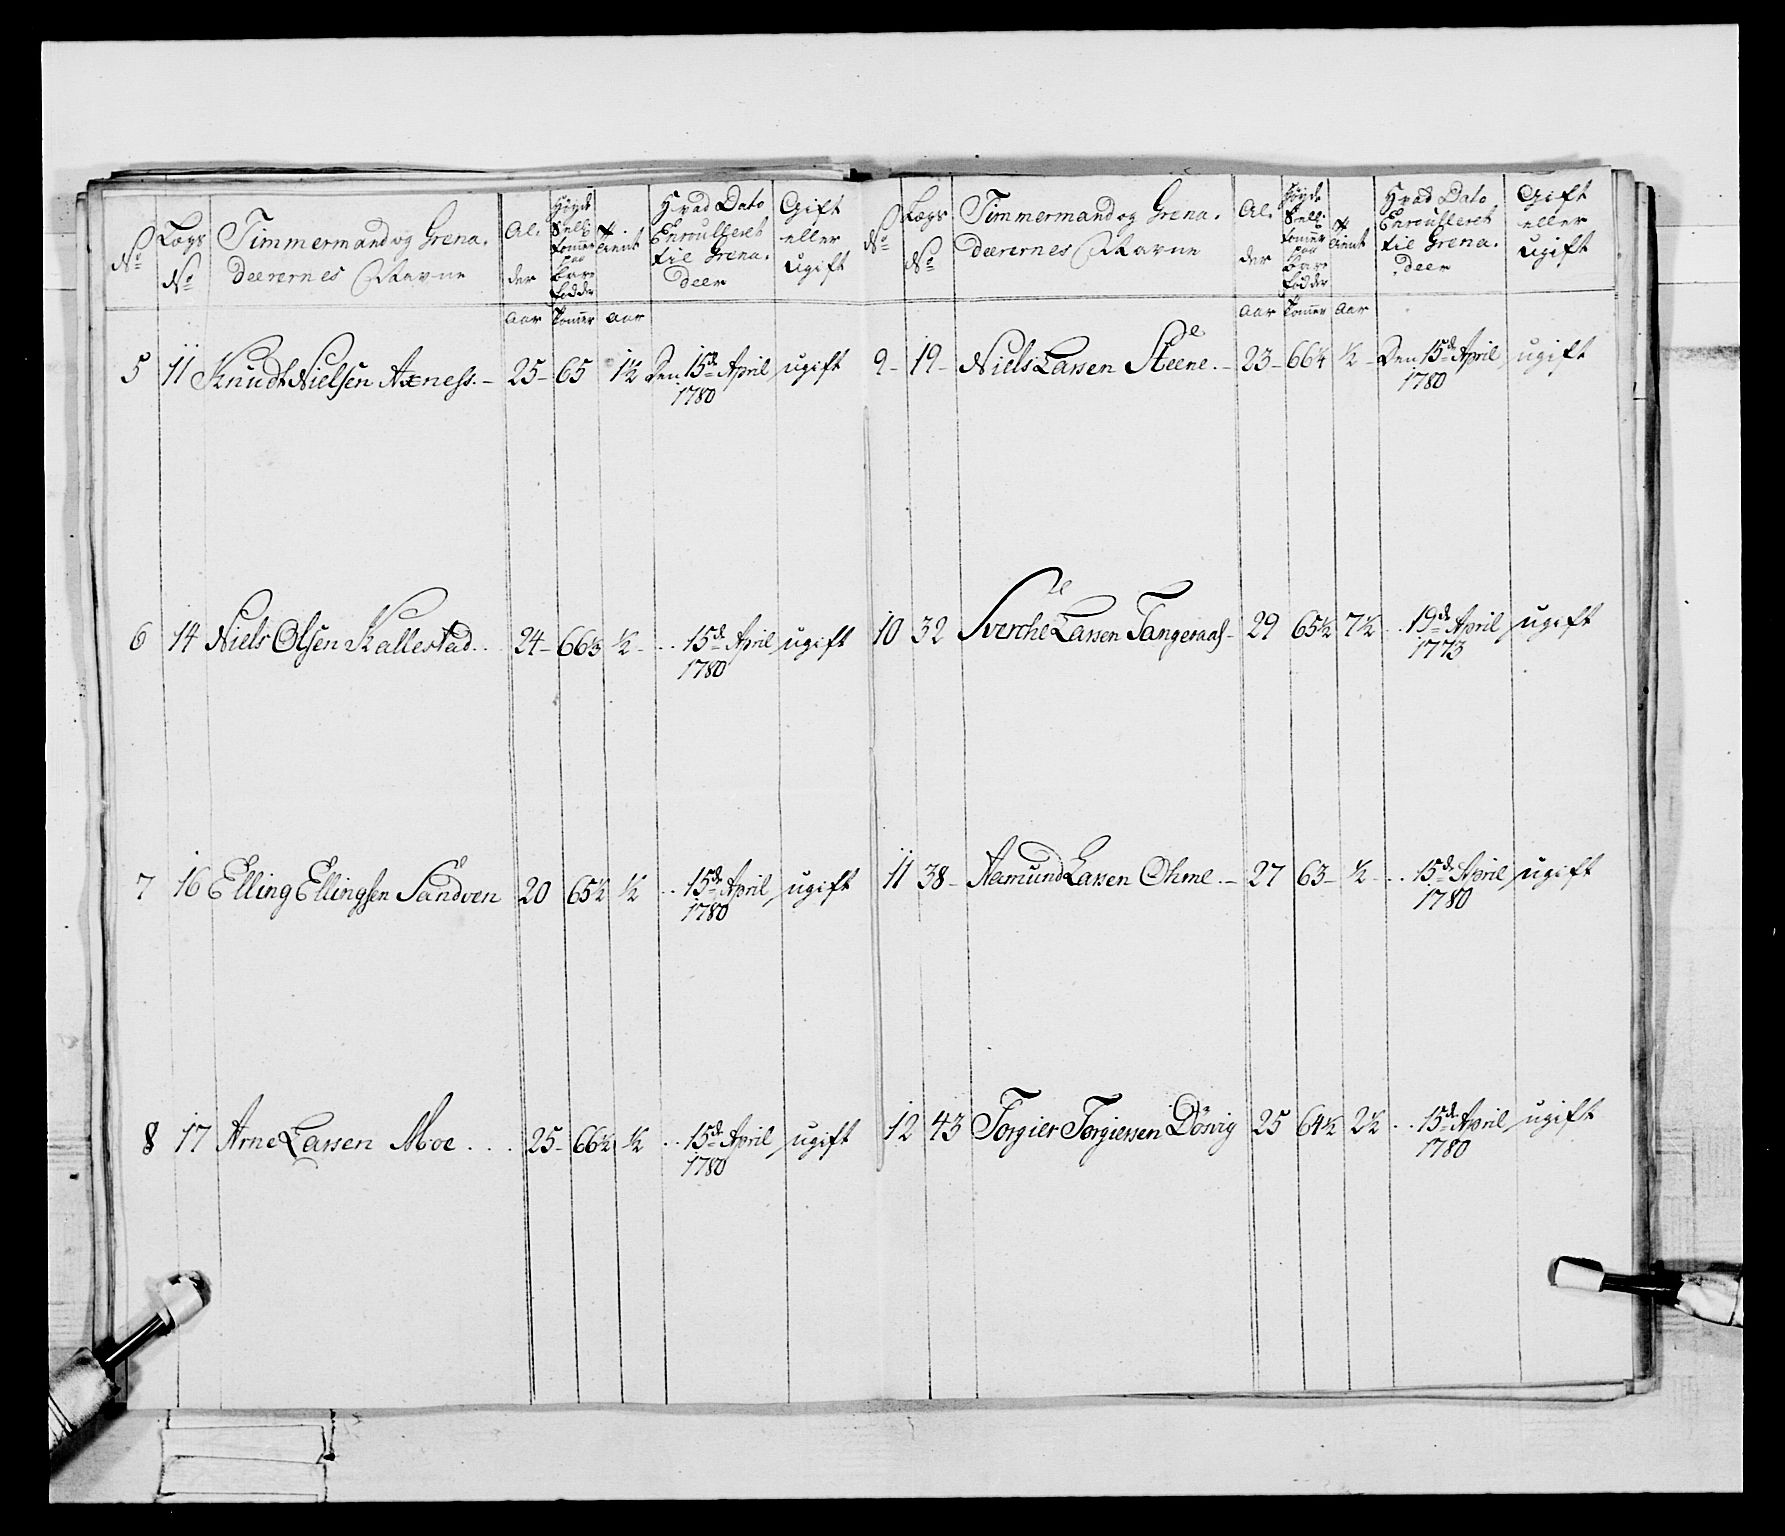 No Lægs No Timmermand og Grena. deerernes Navne Al. der Høyde Sell. tommer paa Bare fødder Hvad Dato Enroulleret til Grena. deer Gift eller ugift
Aar Tommer aar
5 11 Knudt Nielsen Axness. – 25 – 65 1½ Den 15de April ugift
1780
6 14 Niels Olsen Kallestad . . 24 – 66½ ½ – . . 15de April ugift
1780
7 16 Elling Ellingsen Sandven 20 65½ ½ . . 15de April ugift
1780
8 17 Arne Larsen Moe . . . 25 – 66½ ½ . . 15de April ugift
1780
No Lægs No Timmermand og Grena. deerernes Navne Al. der Høyde Sell. tommer paa Bare fødder Hvad Dato Enroulleret til Grena. deer Gift eller ugift
Aar Tommer Aar
9 – 19 – Niels Larsen Steene. – 23 – 66¼ ½ – Den 15de April ugift
1780
10 32 Sverche Larsen Tangeraas – 29 65½ 7½ . . 19de April ugift
1773
11 38 – Aamund Larsen Ohme. – 27 63 – ½ – . . 15de April ugift
1780
12 43 Torgier Torgiersen Dösvig 25 64½ 2½ . . 15de April ugift
1780